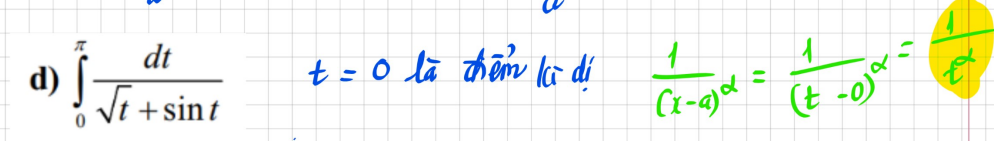 d) \int_0^\pi \frac{dt}{\sqrt{t} + \sin t}
t = 0 là điểm kì dị
\frac{1}{(x-a)^α} = \frac{1}{(t-0)^α} = \frac{1}{t^α}